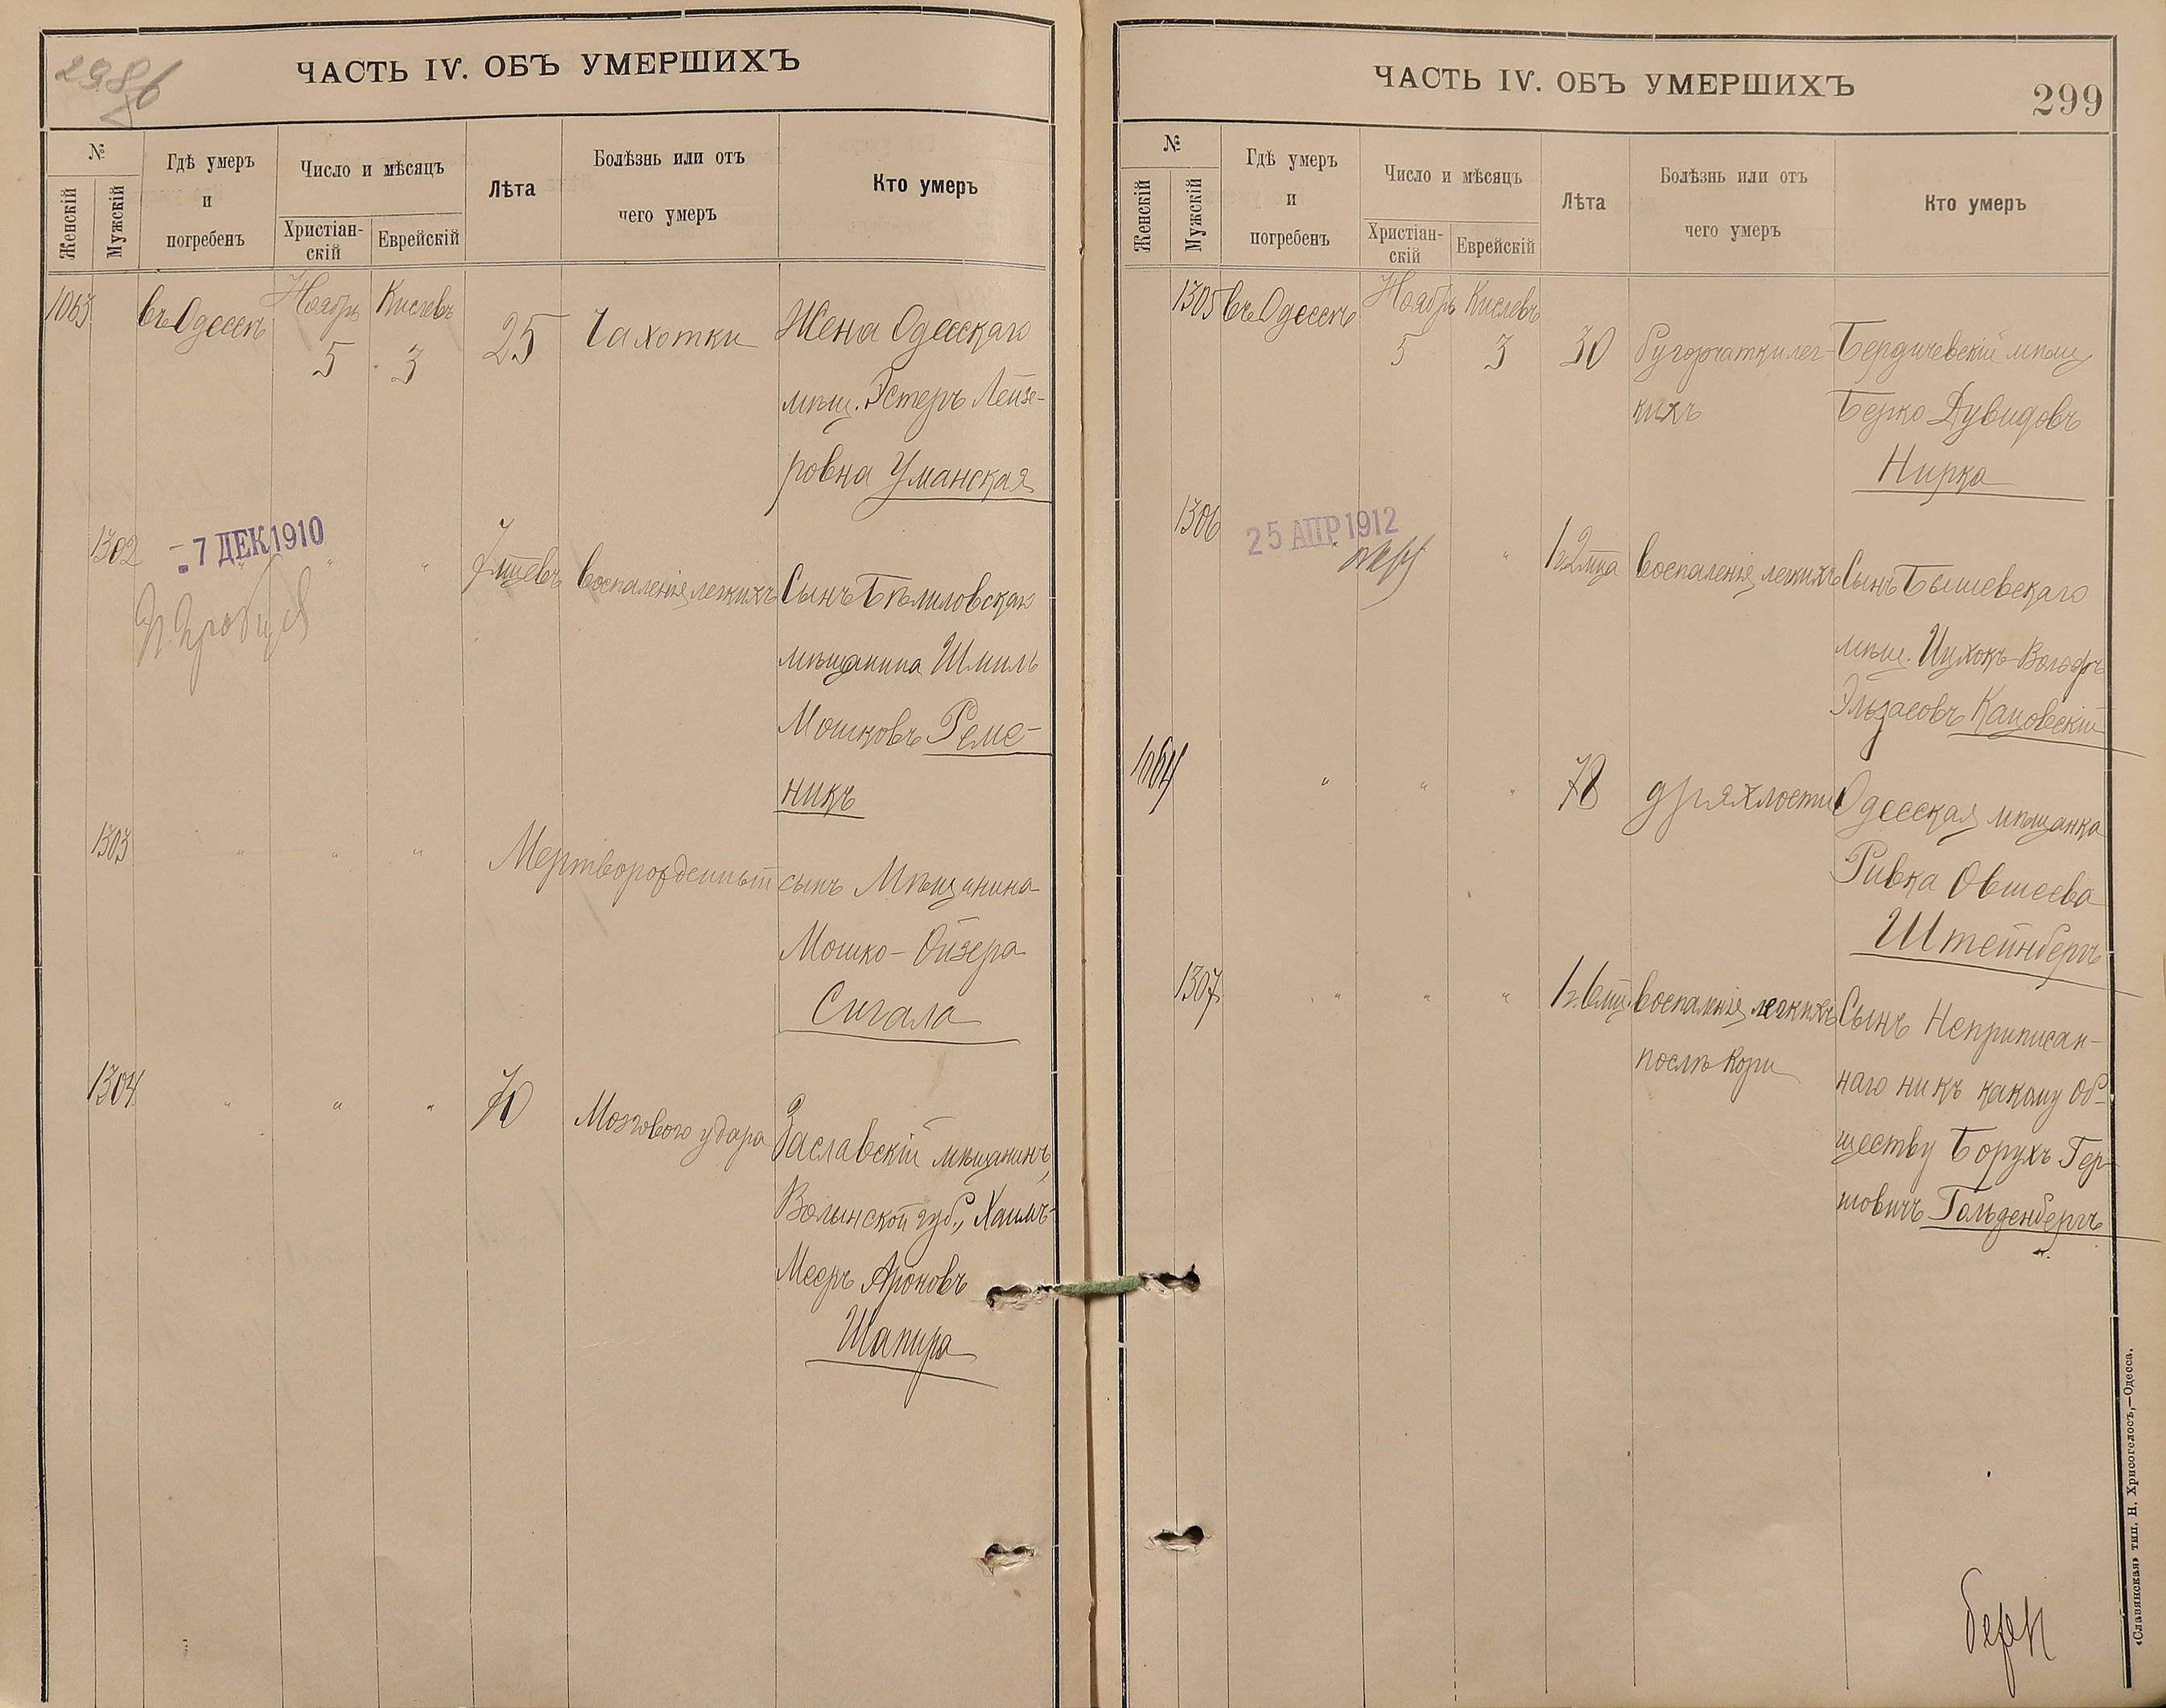 298б
ЧАСТЬ IV. ОБЪ УМЕРШИХЪ
№
Женскій
Мужскій
Гдѣ умеръ
и
погребенъ
Число и мѣсяцъ
Христіан-
скій
Еврейскій
Лѣта
Болѣзнь или отъ
чего умеръ
Кто умеръ
1063 въ Одессѣ Ноябрь Кислевъ
5 3 25 Чахотки Жена Одесскаго
мѣщ. Эстеръ Лейзе-
ровна Уманская
1302 - 7 ДЕК 1910 " " 7 мцевъ воспаленія легкихъ Сынъ Бѣлиловскаго
мѣщанина Шмиль
Мошковъ Реме-
никъ
1303 " " " Мертворожденный сынъ Мѣщанина
Мошко-Ойзера
Сигала
1304 " " " 70 Мозгового удара Заславскій мѣщанинъ,
Волынской губ., Хаимъ-
Мееръ Ароновъ
Шапира
ЧАСТЬ IV. ОБЪ УМЕРШИХЪ
299
№
Женскій
Мужскій
Гдѣ умеръ
и
погребенъ
Число и мѣсяцъ
Христіан-
скій
Еврейскій
Лѣта
Болѣзнь или отъ
чего умеръ
Кто умеръ
1305 въ Одессѣ Ноябрь Кислевъ
5 3 30 бугорчатки лег- Бердичевскій мѣщ
кихъ Берко Дувидовъ
Нирка
1306 25 АПР 1912 " 1 г. 2 мца воспаленія легкихъ Сынъ Бышевскаго
мѣщ. Ицхокъ-Вольфъ
Эльзасовъ Кацовскій
1064 " " " 78 дряхлости Одесская мѣщанка
Ривка Овшеева
Штейнбергъ
1307 " " " 1 г. 6 мц. воспаленія легкихъ Сынъ Неприписан-
послѣ кори наго ни къ какому об-
ществу Борухъ Гер-
шовичъ Гольденбергъ
«Славянская» тип. Н. Хрисогелосъ,—Одесса.